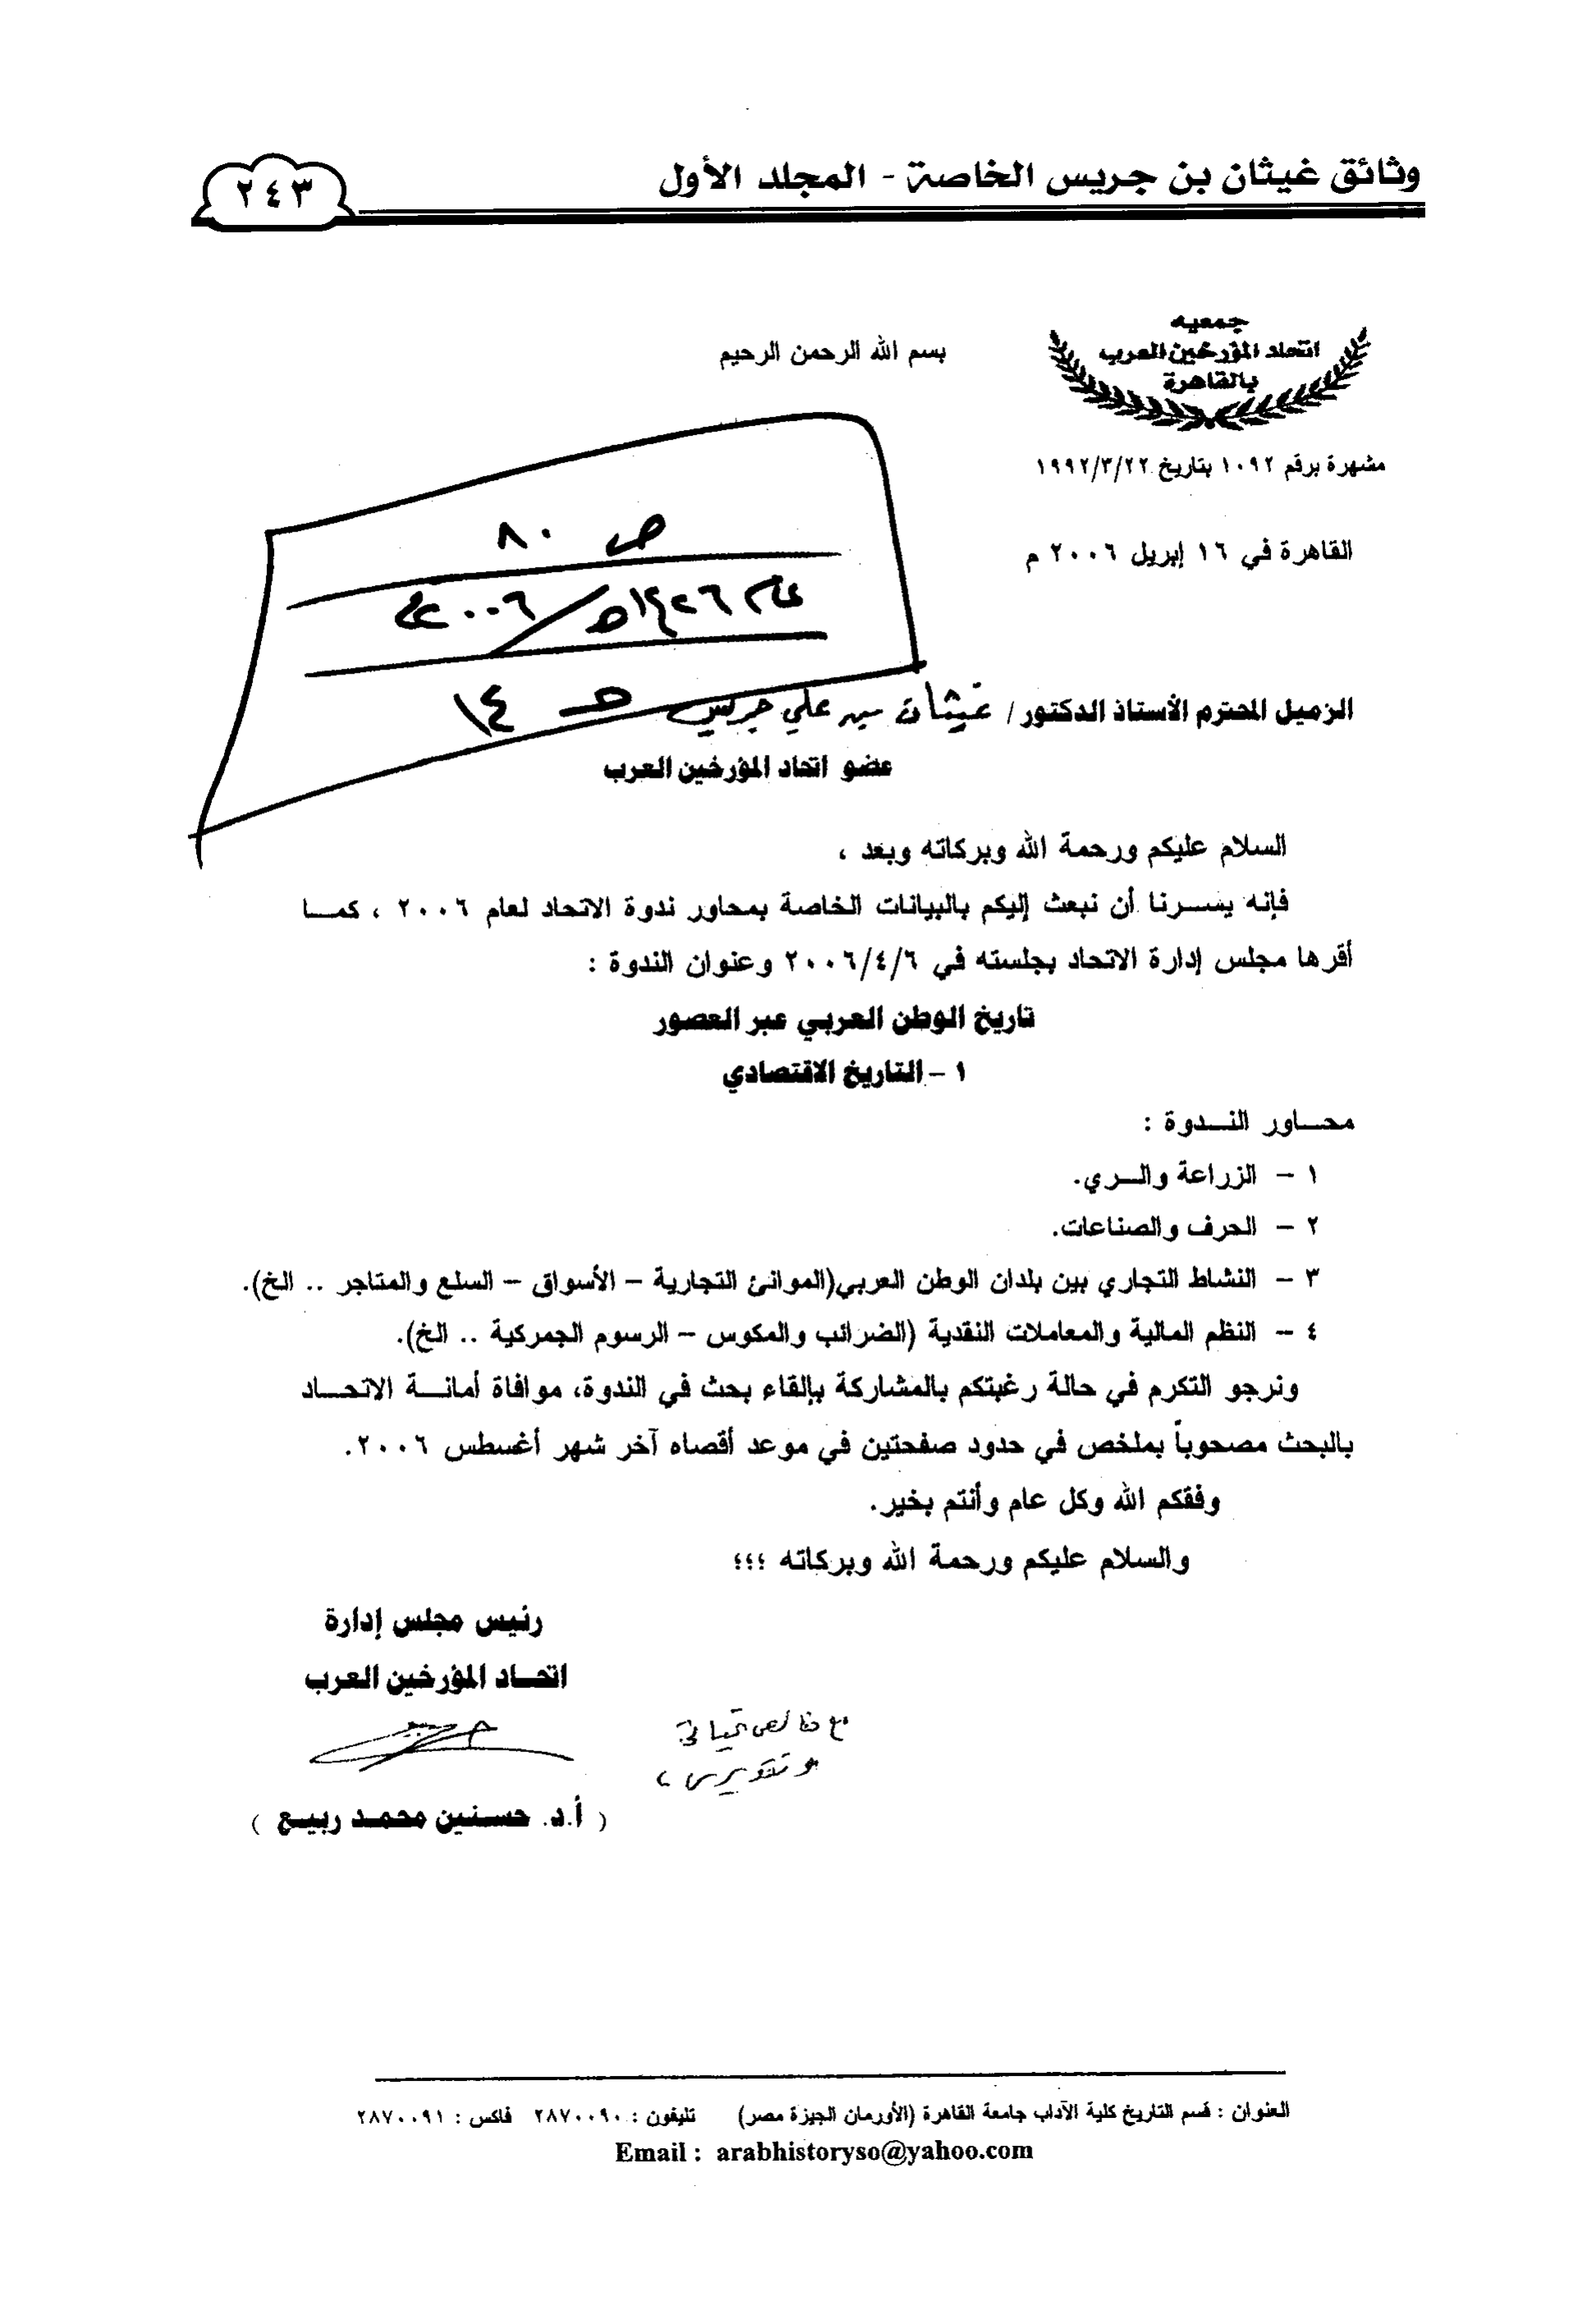 وثائق غيثان بن جريس الخاصة - المجلد الأول
٢٤٣
جمعيه
اتحاد المؤرخين العرب
بالقاهرة
بسم الله الرحمن الرحيم
مشهرة برقم ١٠٩٢ بتاريخ ١٩٩٢/٣/٢٢
القاهرة في ١٦ إبريل ٢٠٠٦ م
ص ٨٠
عام ١٤٢٦هـ/٢٠٠٦م
هـ ١٤
الزميل المحترم الأستاذ الدكتور / غيثان بن علي جريس
عضو اتحاد المؤرخين العرب
السلام عليكم ورحمة الله وبركاته وبعد ،
فإنه يسرنا أن نبعث إليكم بالبيانات الخاصة بمحاور ندوة الاتحاد لعام ٢٠٠٦ ، كما
أقرها مجلس إدارة الاتحاد بجلسته في ٢٠٠٦/٤/٦ وعنوان الندوة :
تاريخ الوطن العربي عبر العصور
١ - التاريخ الاقتصادي
محاور الندوة :
١ - الزراعة والري.
٢ - الحرف والصناعات.
٣ - النشاط التجاري بين بلدان الوطن العربي(الموانئ التجارية - الأسواق - السلع والمتاجر .. الخ).
٤ - النظم المالية والمعاملات النقدية (الضرائب والمكوس - الرسوم الجمركية .. الخ).
ونرجو التكرم في حالة رغبتكم بالمشاركة بإلقاء بحث في الندوة، موافاة أمانة الاتحاد
بالبحث مصحوباً بملخص في حدود صفحتين في موعد أقصاه آخر شهر أغسطس ٢٠٠٦.
وفقكم الله وكل عام وأنتم بخير.
والسلام عليكم ورحمة الله وبركاته ؛؛؛
رئيس مجلس إدارة
اتحاد المؤرخين العرب
مع خالص تحياتي
وتقديري ،
( أ.د. حسنين محمد ربيع )
العنوان : قسم التاريخ كلية الآداب جامعة القاهرة (الأورمان الجيزة مصر) تليفون : ٢٨٧٠٠٩٠ فاكس : ٢٨٧٠٠٩١
Email : arabhistoryso@yahoo.com